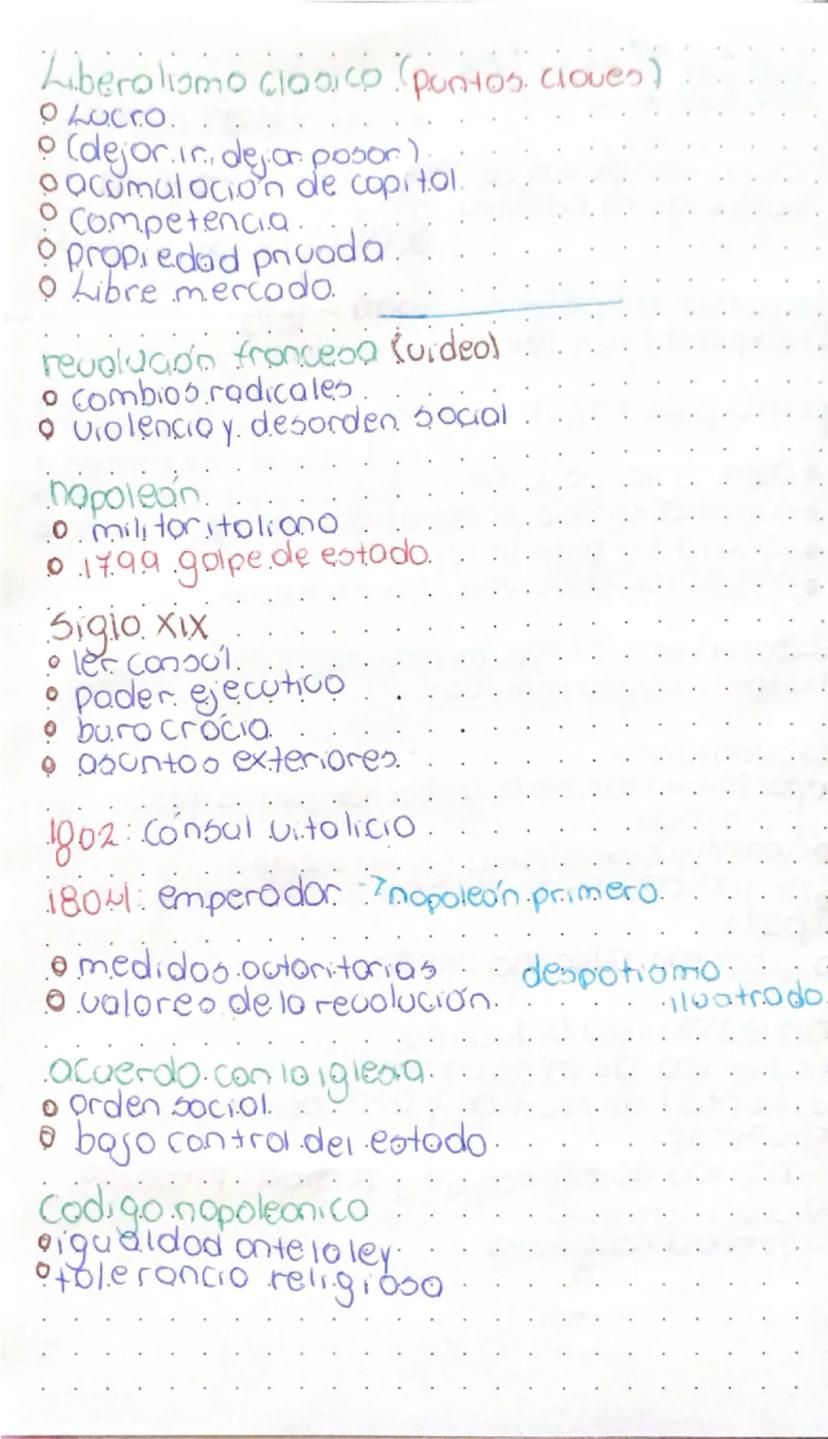 Liberalismo clasico (puntos claves)
Lucro
(dejar ir, dejar pasar)
acumulación de capital.
competencia
propiedad privada
Libre mercado.
revolución francesa (video)
cambios radicales
violencia y desorden social
napoleón
militar italiano
1799 golpe de estado.
Siglo XIX
1er consúl
poder ejecutivo
burocrácia
asuntos exteriores.
1802: cónsul vitalicio
1804: emperador → napoleón primero
medidas autoritarias despotismo
valores de la revolución. ilustrado.
acuerdo con la iglesia.
orden social
bajo control del estado
Codigo napoleonico
igualdad ante la ley
tolerancia religiosa